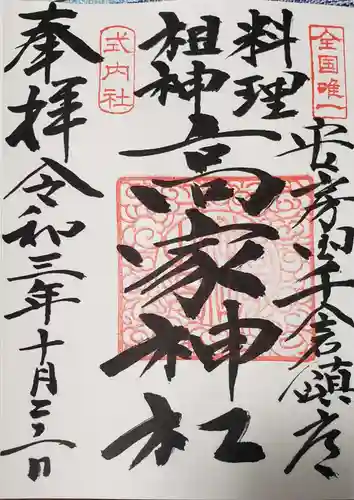 全国唯一
安房国千倉鎮座
料理
祖神
高家神社
式内社
奉拝
令和三年十月二十二日